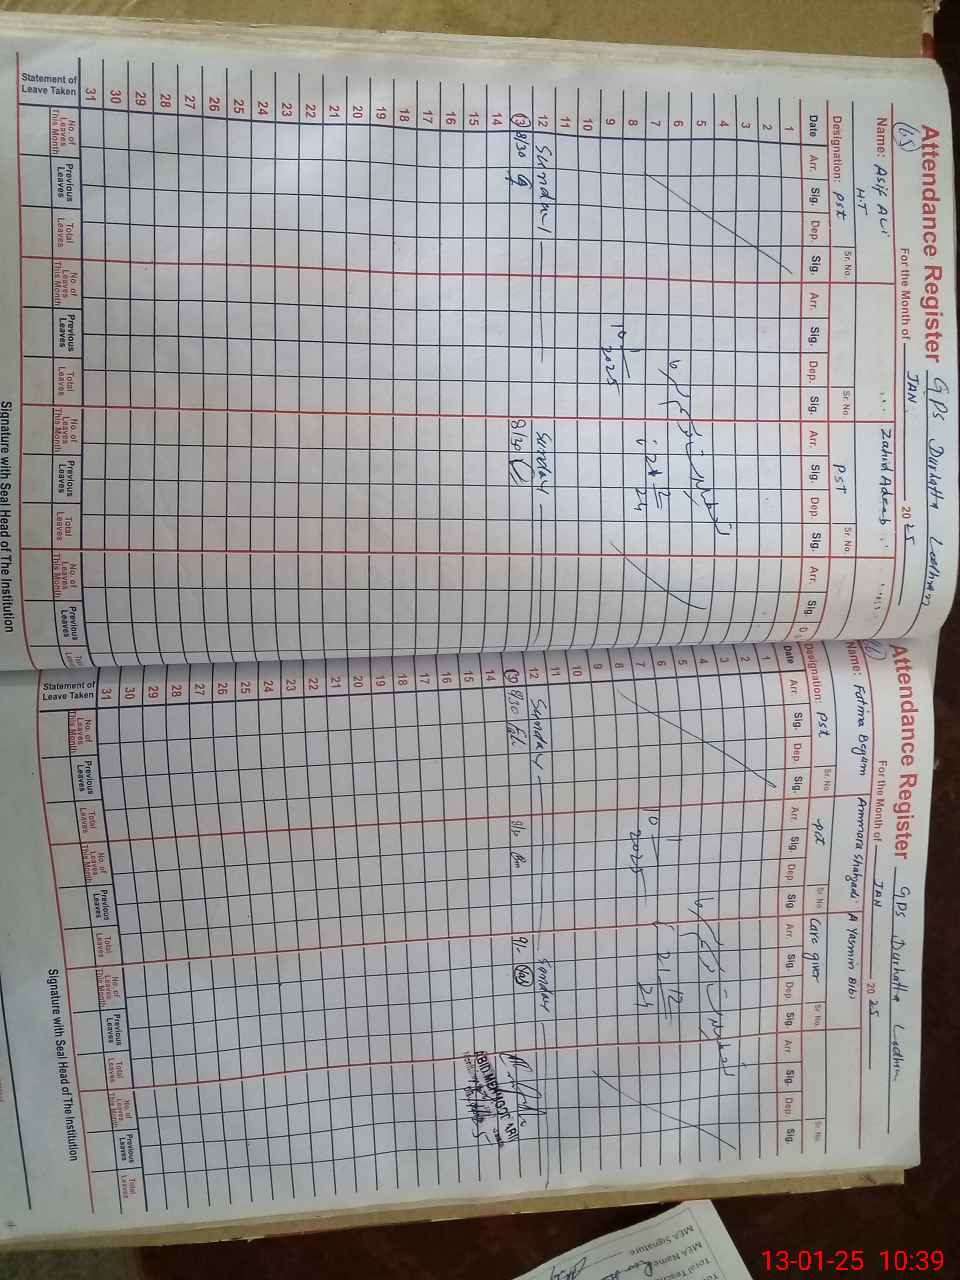 Attendance Register GPS Durhatta Lodhran
(65) For the Month of JAN 2025
Name: Asif Ali Zahid Adeeb
H.T
Designation: Pst Sr. No. Sr. No. PST Sr. No.
Date Arr. Sig. Dep. Sig. Arr. Sig. Dep. Sig. Arr. Sig. Dep. Sig. Arr. Sig.
1
2
3
4
5
6
7
8
9
10
11
12 Sunday Sunday
13 8/30 8/30
14
15
16
17
18
19
20
21
22
23
24
25
26
27
28
29
30
31
Statement of Leave Taken
No. of Leaves This Month Previous Leaves Total Leaves No. of Leaves This Month Previous Leaves Total Leaves No. of Leaves This Month Previous Leaves Total Leaves No. of Leaves This Month Previous Leaves
Signature with Seal Head of The Institution
21 12 24
10 1 2025
Attendance Register GPS Durhatta Lodhran
For the Month of JAN 2025
Name: Fatima Begam Ammara Shahzadi Yasmin Bibi
Designation: Pst Sr. No. pst Sr. No. Care giver Sr. No. Sr. No.
Date Arr. Sig. Dep. Sig. Arr. Sig. Dep. Sig. Arr. Sig. Dep. Sig. Arr. Sig. Dep. Sig.
1
2
3
4
5
6
7
8
9
10
11
12 Sunday Sunday
13 8/30
14
15
16
17
18
19
20
21
22
23
24
25
26
27
28
29
30
31
Statement of Leave Taken
No. of Leaves This Month Previous Leaves Total Leaves No. of Leaves This Month Previous Leaves Total Leaves No. of Leaves This Month Previous Leaves Total Leaves No. of Leaves This Month Previous Leaves Total Leaves
Signature with Seal Head of The Institution
21 12 24
10 1 2025
MEA Signature
MEA Name
13-01-25 10:39